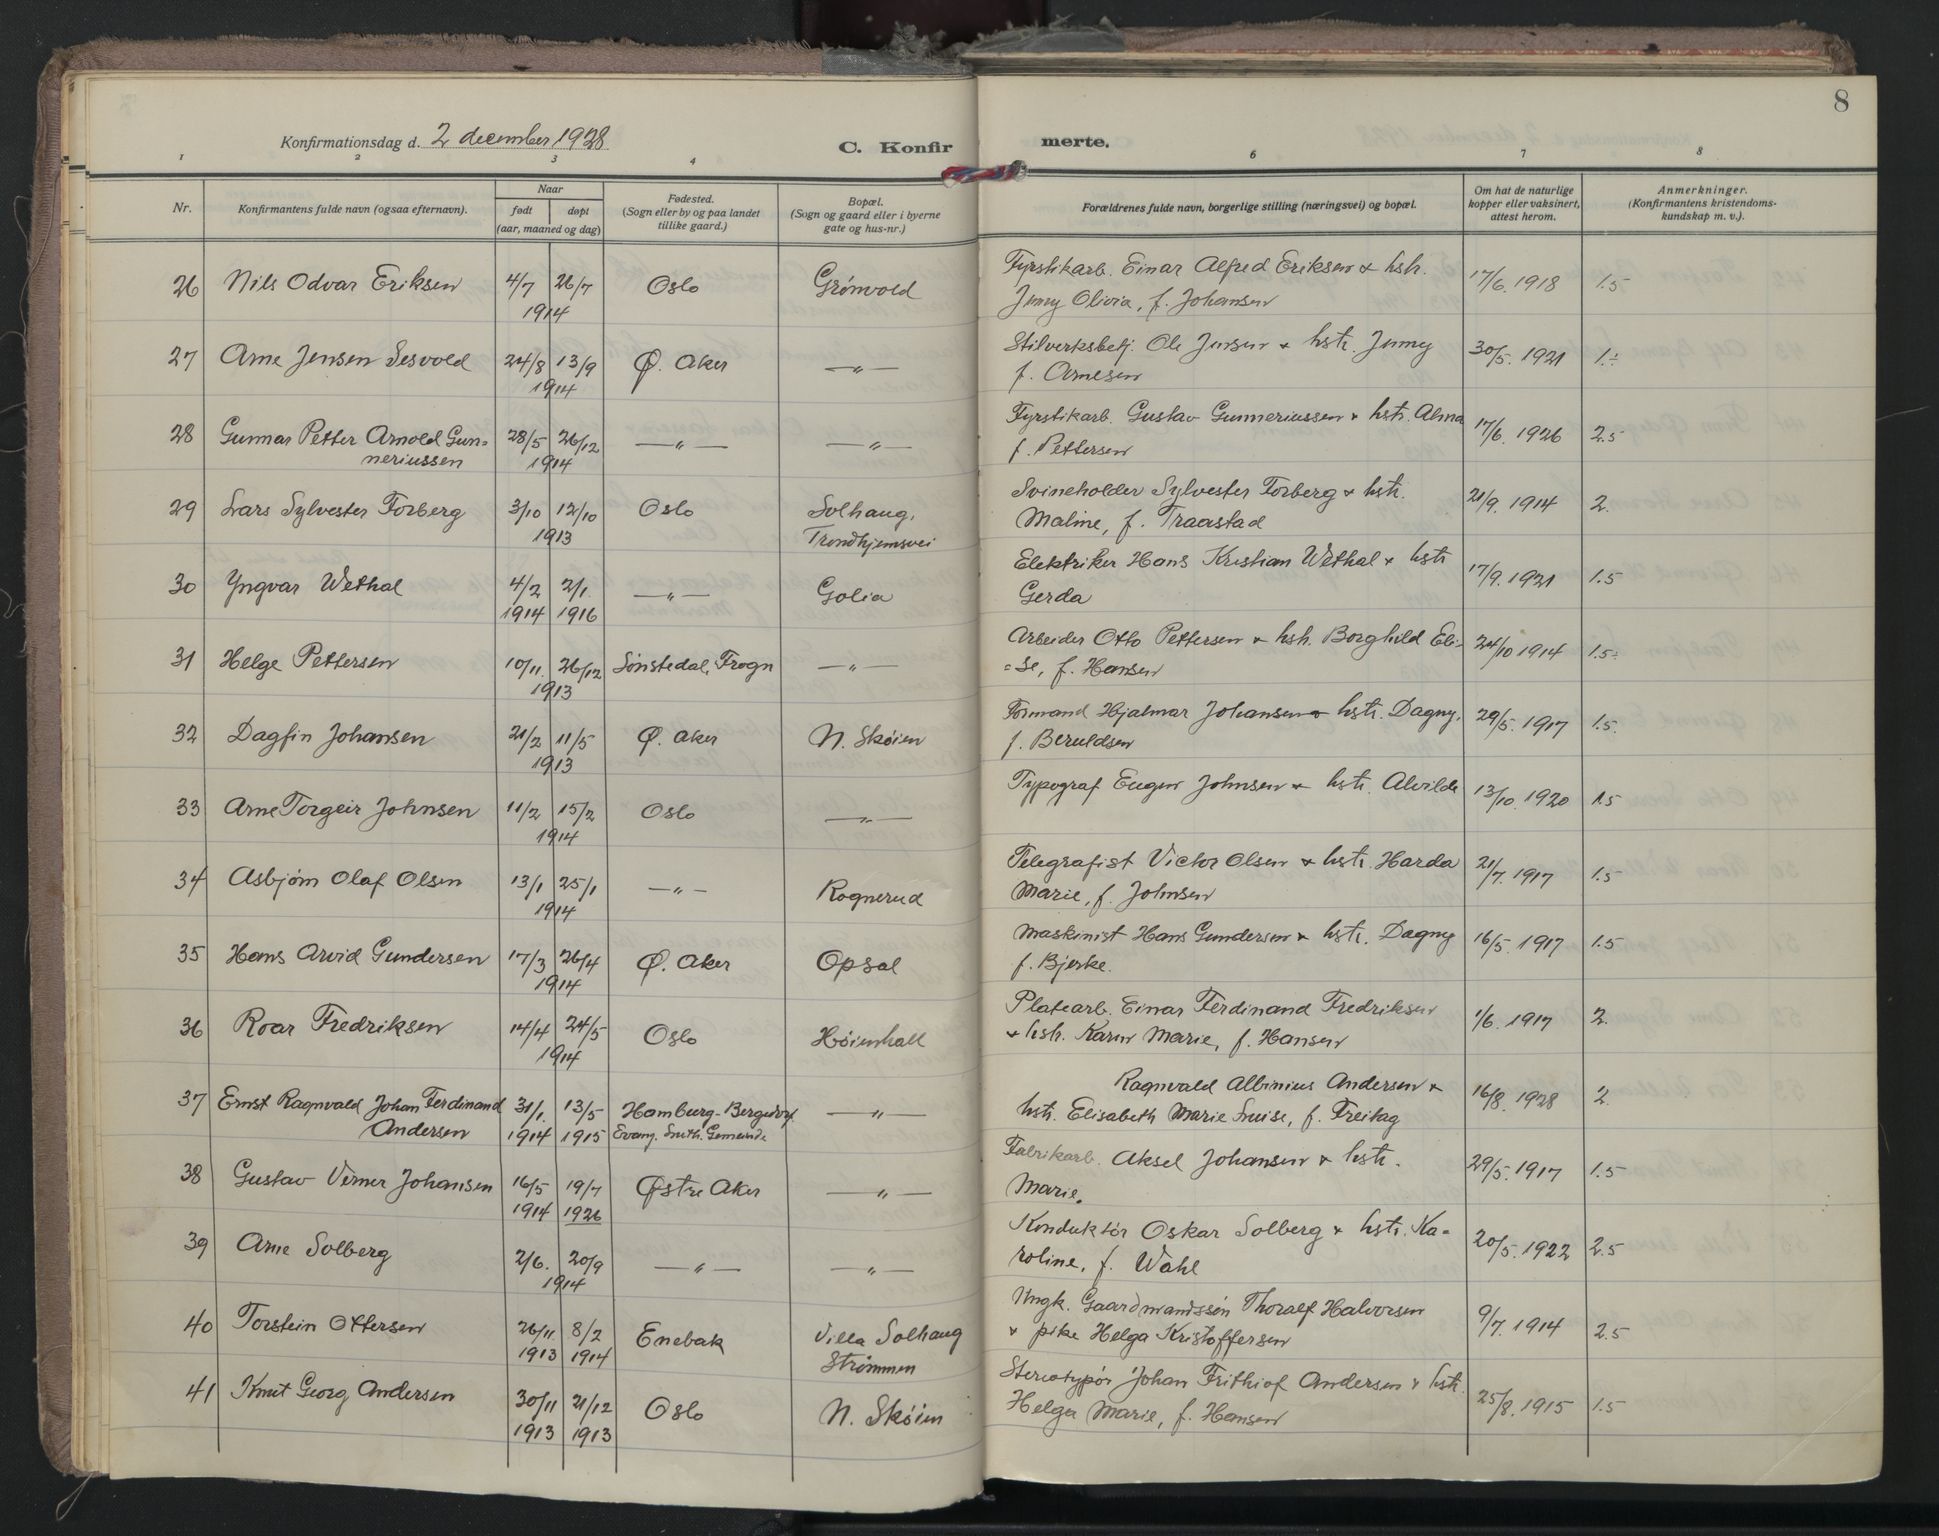 8
Konfirmationsdag d. 2 december 1928
C. Konfir merte.
1 2 3 4 6 7 8
Nr.
Konfirmantens fulde navn (ogsaa efternavn).
Naar
født døpt
(aar, maaned og dag)
Fødested.
(Sogn eller by og paa landet
tillike gaard.)
Bopæl.
(Sogn og gaard eller i byerne
gate og hus-nr.)
Forældrenes fulde navn, borgerlige stilling (næringsvei) og bopæl.
Om hat de naturlige
kopper eller vaksinert,
attest herom.
Anmerkninger.
(Konfirmantens kristendoms-
kundskap m. v.).
26 Nils Odvar Eriksen 4/7 26/7 Oslo Grønvold Fyrstikarb. Einar Alfred Eriksen & hstr. 17/6. 1918 1.5
1914 Jenny Olivia, f. Johansen
27 Arne Jensen Sesvold 24/8 13/9 Ø. Aker —"— Stilverksbetj. Ole Jensen & hstr. Jenny 30/5. 1921 1.÷
1914 f. Arnesen
28 Gunnar Petter Arnold Gun= 28/5 26/12 —"— —"— Fyrstikarb. Gustav Gunneriussen & hstr. Alma 17/6. 1926 2.5
neriussen 1914 f. Pettersen
29 Lars Sylvester Forberg 3/10 12/10 Oslo Solhaug, Svineholder Sylvester Forberg & hstr. 21/9. 1914 2.
1913 Trondhjemsvei Maline, f. Traastad
30 Yngvar Wethal 4/2 2/1. —"— Golia Elektriker Hans Kristian Wethal & hstr 17/9. 1921 1.5
1914 1916 Gerda
31 Helge Pettersen 10/11. 26/12 Sønstedal, Frogn —"— Arbeider Otto Pettersen & hstr. Borghild Eli= 24/10 1914 1.5÷
1913 =se, f. Hansen
32 Dagfin Johansen 21/2 11/5 Ø. Aker N. Skøien Formand Hjalmar Johansen & hstr. Dagny, 29/5. 1917 1.5.
1913 f. Beruldsen
33 Arne Torgeir Johnsen 11/2 15/2 Oslo —"— Typograf Eugen Johnsen & hstr. Alvilde 13/10. 1920 1.5
1914
34 Asbjørn Olaf Olsen 13/1 25/1 —"— Rognerud Telegrafist Victor Olsen & hstr. Harda 21/7. 1917 1.5
1914 Marie, f. Johnsen
35 Hans Arvid Gundersen 17/3 26/4 Ø. Aker Opsal Maskinist Hans Gundersen & hstr. Dagny 16/5. 1917 1.5
1914 f. Bjerke.
36 Roar Fredriksen 14/4 24/5 Oslo Høienhall Platearb. Einar Ferdinand Fredriksen 1/6. 1917 2.
1914 & hstr. Karen Marie, f. Hansen
37 Ernst Ragnvald Johan Ferdinand 31/1. 13/5 Hamburg-Bergedorf —"— Ragnvald Albinius Andersen & 16/8. 1928 2.
Andersen 1914 1915 Evang. Luth. Gemeinde hstr. Elisabeth Marie Luise, f. Freitag
38 Gustav Verner Johansen 16/5 19/7 Østre Aker —"— Fabrikarb. Aksel Johansen & hstr. 29/5. 1917 1.5
1914 1926 Marie.
39 Arne Solberg 2/6. 20/9 —"— —"— Konduktør Oskar Solberg & hstr. Ka= 20/5. 1922 2.5
1914 roline, f. Wahl
40 Torstein Ottersen 26/11. 8/2 Enebak Villa Solhaug Ungk. Gaardmandssøn Thoralf Halvorsen 9/7. 1914 2.5
1913 1914 Strømmen & pike Helga Kristoffersen
41 Knut Georg Andersen 30/11 21/12 Oslo N. Skøien Stereotypør Johan Frithiof Andersen & hstr. 25/8. 1915 1.5
1913 1913 Helga Marie, f. Hansen